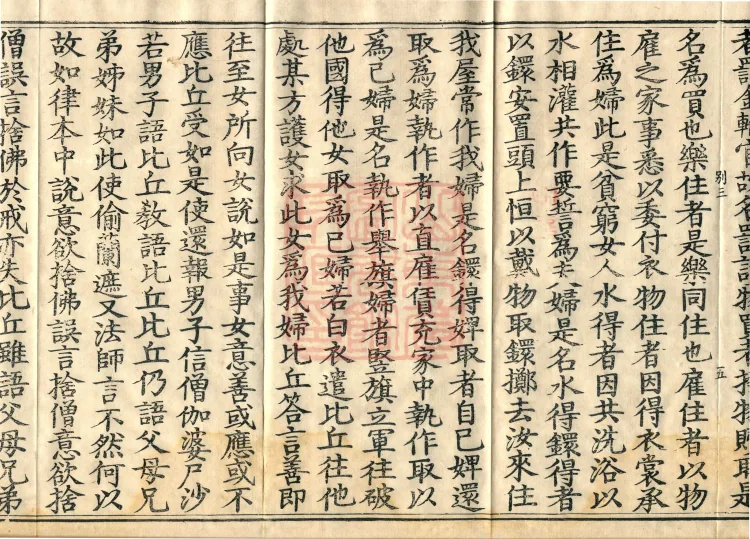 名爲買也樂住者是樂同住也雇住者以物
雇之家事悉以委付衣物住者因得衣裳承
住爲婦此是貧窮女人水得者因共洗浴以
水相灌共作要誓爲夫婦是名水得鐶得者
以鐶安置頭上恒以戴物取鐶擲去汝來住
我屋常作我婦是名鐶得婢取者自己婢還
取爲婦執作者以直雇賃充家中執作取以
爲己婦是名執作舉旗婦者竪旗立軍往破
他國得他女取爲己婦若白衣遣比丘往他
處某方護女求此女爲我婦比丘答言善即
往至女所向女說如是事女意善或應或不
應比丘受如是使還報男子信僧伽婆尸沙
若男子語比丘教語比丘比丘仍語父母兄
弟姊妹如此使偷蘭遮又法師言不然何以
故如律本中說意欲捨佛誤言捨僧意欲捨
僧誤言捨佛於戒亦失比丘雖語父母兄弟
別三
五